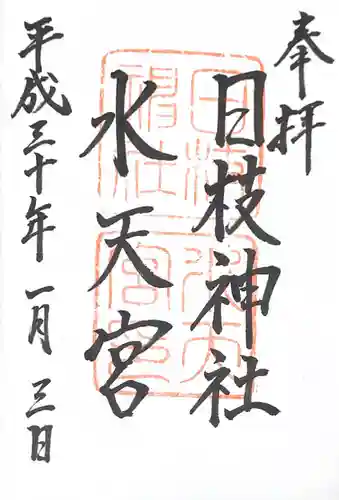 奉拝
日枝神社
水天宮
平成三十年一月三日
日枝神社
水天宮